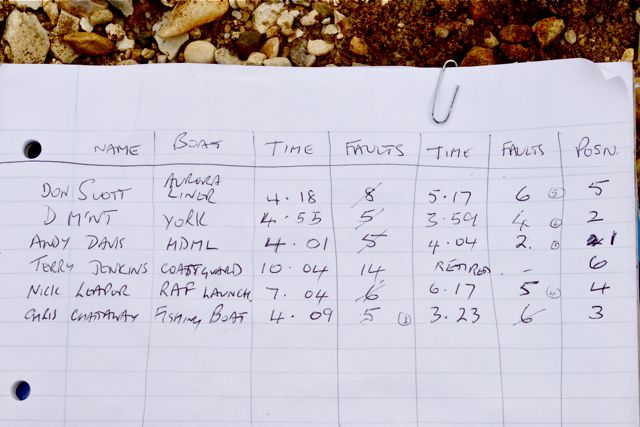 NAME BOAT TIME FAULTS TIME FAULTS POSN.
DON SCOTT AURORA LINER 4.18 8 5.17 6 ⑤ 5
D MINT YORK 4.55 5 3.59 4 2
ANDY DAVIS HDML 4.01 5 4.04 2. ① 1
TERRY JENKINS COASTGUARD 10.04 14 RETIRED - 6
NICK LEAPER RAF LAUNCH. 7.04 6 6.17 5 ④ 4
CHRIS CHATTAWAY FISHING BOAT 4.09 5 ③ 3.23 6 3